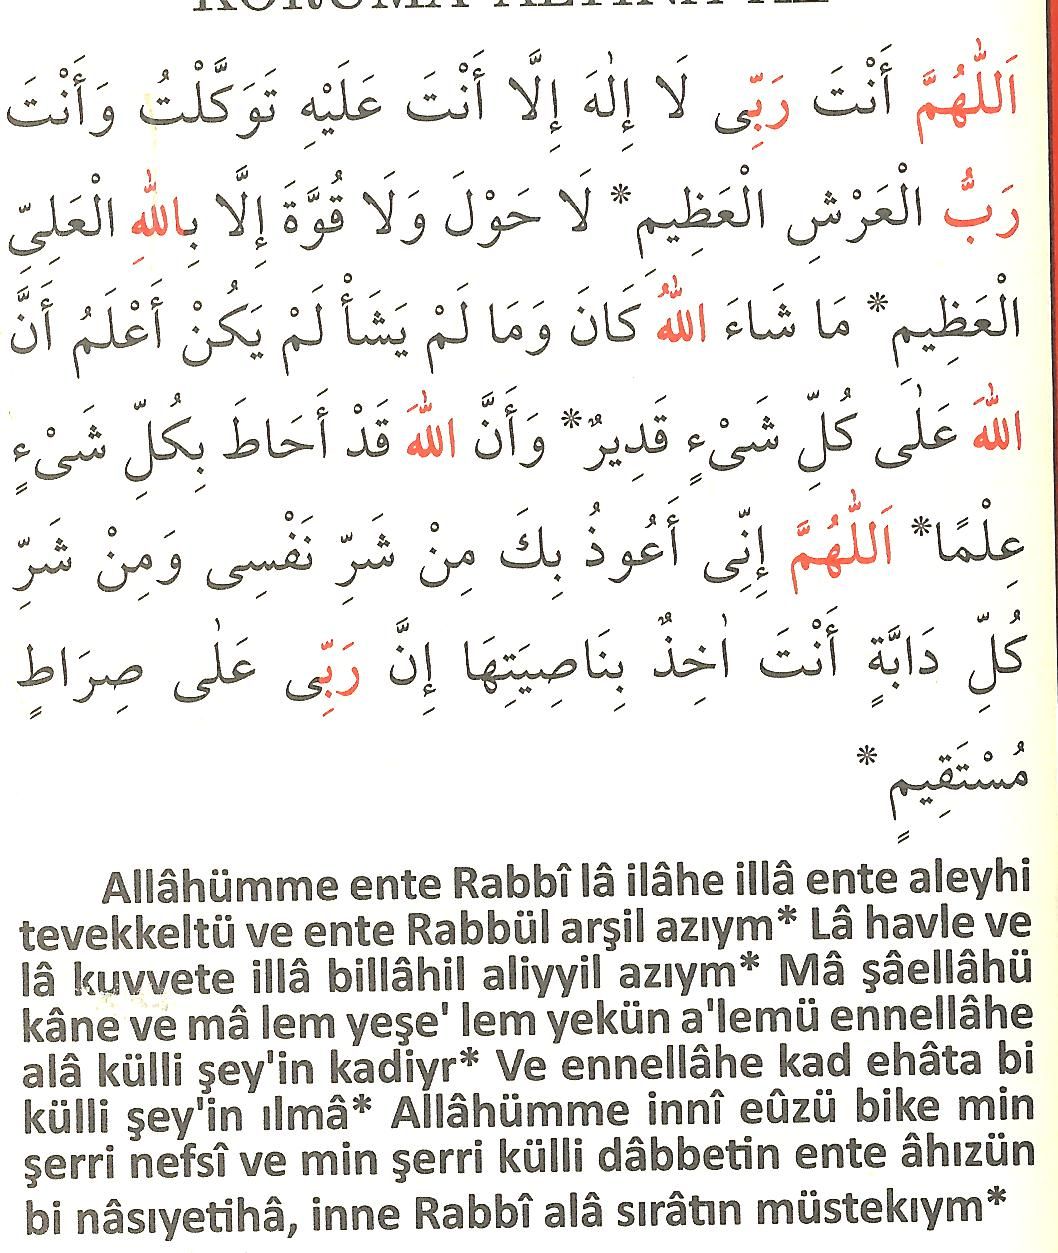 اَللّٰهُمَّ أَنْتَ رَبِّى لَا إِلٰهَ إِلَّا أَنْتَ عَلَيْهِ تَوَكَّلْتُ وَأَنْتَ
رَبُّ الْعَرْشِ الْعَظِيمِ* لَا حَوْلَ وَلَا قُوَّةَ إِلَّا بِاللّٰهِ الْعَلِيِّ
الْعَظِيمِ* مَا شَاءَ اللّٰهُ كَانَ وَمَا لَمْ يَشَأْ لَمْ يَكُنْ أَعْلَمُ أَنَّ
اللّٰهَ عَلٰى كُلِّ شَىْءٍ قَدِيرٌ* وَأَنَّ اللّٰهَ قَدْ أَحَاطَ بِكُلِّ شَىْءٍ
عِلْمًا* اَللّٰهُمَّ إِنِّى أَعُوذُ بِكَ مِنْ شَرِّ نَفْسِى وَمِنْ شَرِّ
كُلِّ دَابَّةٍ أَنْتَ اٰخِذٌ بِنَاصِيَتِهَا إِنَّ رَبِّى عَلٰى صِرَاطٍ
مُسْتَقِيمٍ*
Allâhümme ente Rabbî lâ ilâhe illâ ente aleyhi
tevekkeltü ve ente Rabbül arşil azıym* Lâ havle ve
lâ kuvvete illâ billâhil aliyyil azıym* Mâ şâellâhü
kâne ve mâ lem yeşe' lem yekün a'lemü ennellâhe
alâ külli şey'in kadiyr* Ve ennellâhe kad ehâta bi
külli şey'in ılmâ* Allâhümme innî eûzü bike min
şerri nefsî ve min şerri külli dâbbetin ente âhızün
bi nâsıyetihâ, inne Rabbî alâ sırâtın müstekıym*